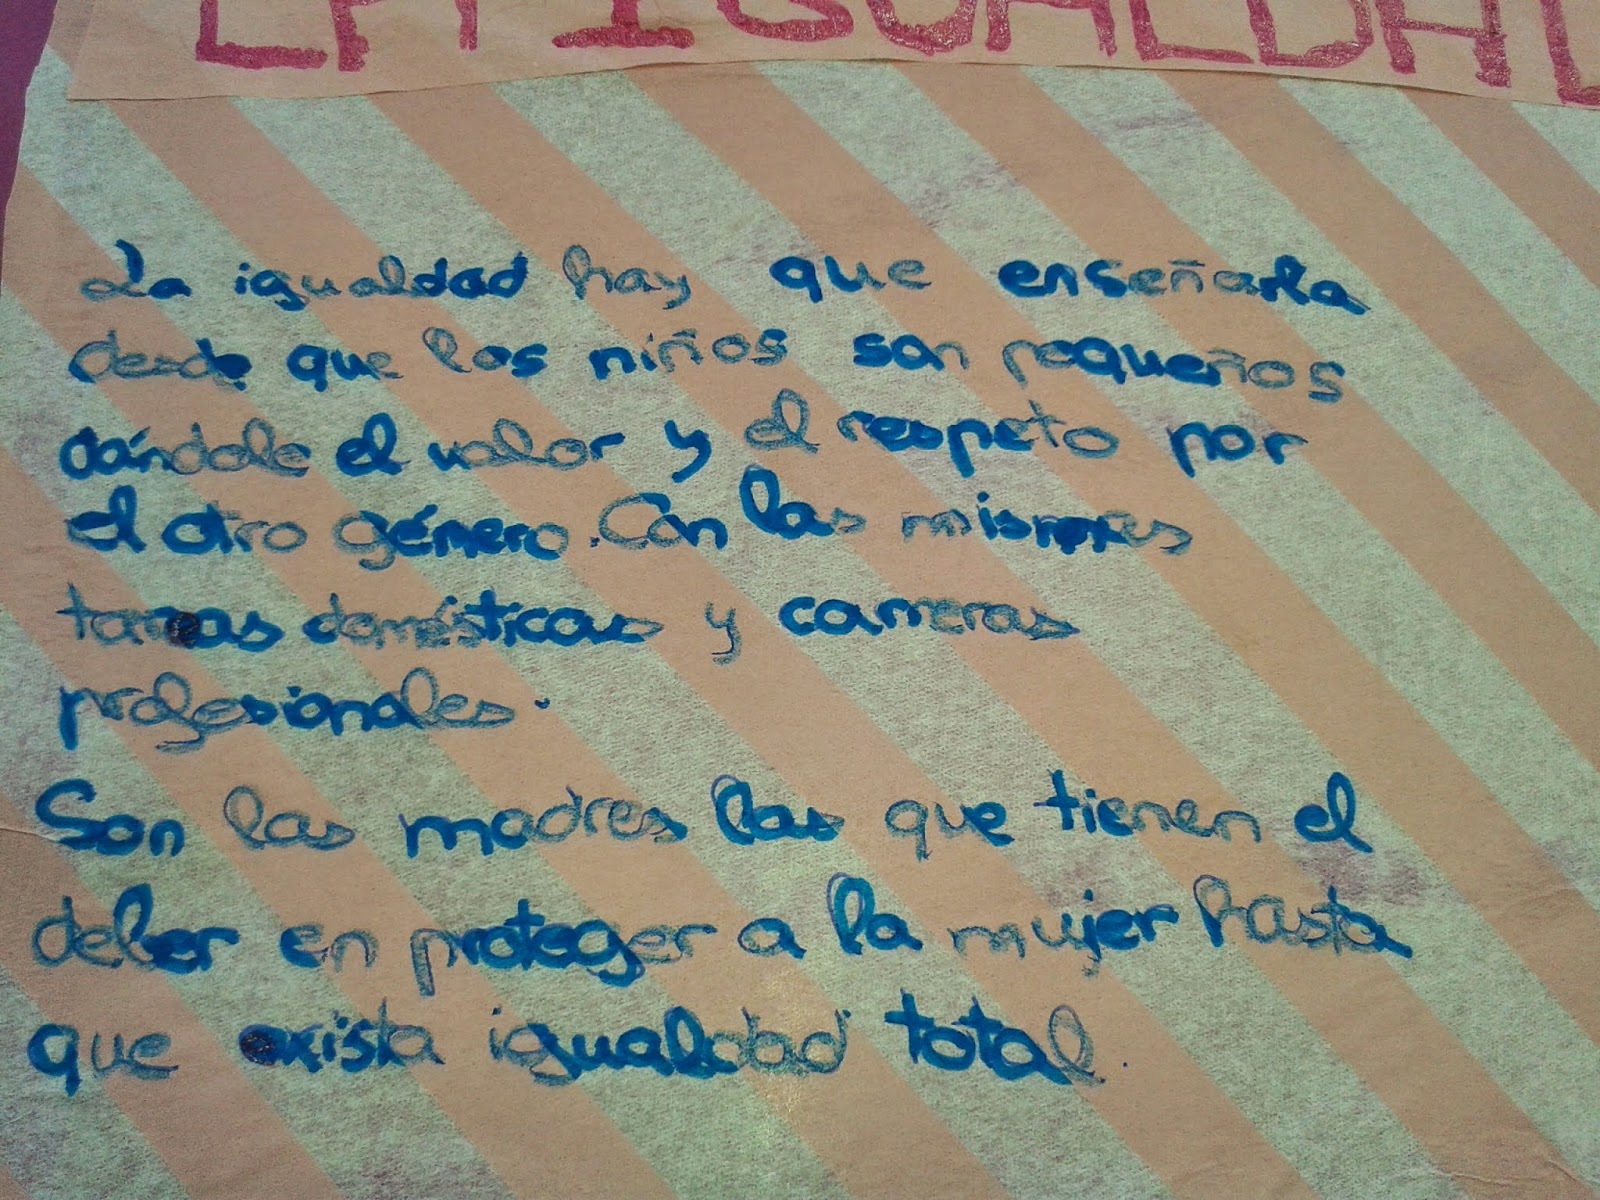 LA IGUALDAD
La igualdad hay que enseñarla
desde que los niños son pequeños
dándole el valor y el respeto por
el otro género. Con las mismas
tareas domésticas y carreras
profesionales.
Son las madres las que tienen el
deber en proteger a la mujer hasta
que exista igualdad total.